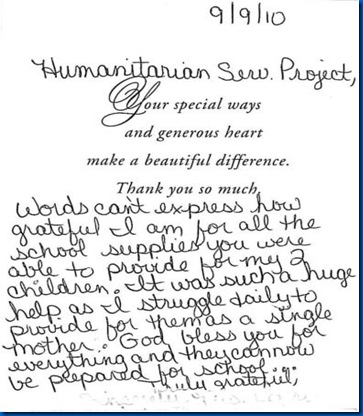 9/9/10
Humanitarian Serv. Project,
Your special ways
and generous heart
make a beautiful difference.
Thank you so much,
Words can't express how
grateful I am for all the
school supplies you were
able to provide for my 2
children. It was such a huge
help as I struggle daily to
provide for them as a single
mother. God bless you for
everything and they can now
be prepared for school.
truly grateful,